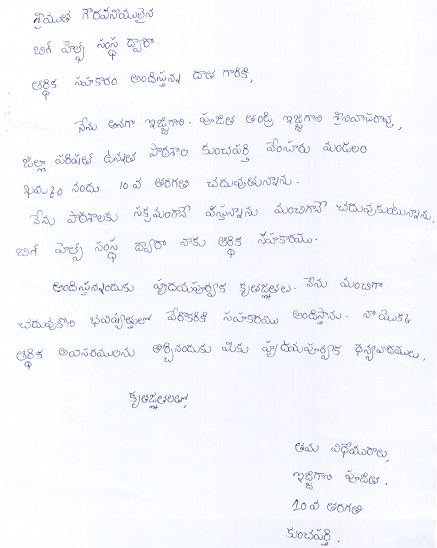 శ్రీయుత గౌరవనీయులైన
బిగ్ హెల్ప్ సంస్థ ద్వారా
ఆర్థిక సహకారం అందిస్తున్న దాత గారికి,
నేను అనగా ఇజ్జిగాని. పూజిత తండ్రి ఇజ్జిగాని శ్రీనివాసరావు,
జిల్లా పరిషత్ ఉన్నత పాఠశాల కుంచపర్తి వేంసూరు మండలం
ఖమ్మం నందు 10 వ తరగతి చదువుతున్నాను.
నేను పాఠశాలకు సక్రమంగానే వస్తున్నాను మంచిగానే చదువుకుంటున్నాను.
బిగ్ హెల్ప్ సంస్థ ద్వారా నాకు ఆర్థిక సహకారము.
అందిస్తున్నందుకు హృదయపూర్వక కృతజ్ఞతలు. నేను మంచిగా
చదువుకొని భవిష్యత్తులో వేరొకరికి సహకారము అందిస్తాను. నా యొక్క
ఆర్థిక అవసరములను తీర్చినందుకు మీకు హృదయపూర్వక ధన్యవాదములు.
కృతజ్ఞతలతో,
తమ విధేయురాలు,
ఇజ్జిగాని పూజిత.
10 వ తరగతి
కుంచపర్తి.